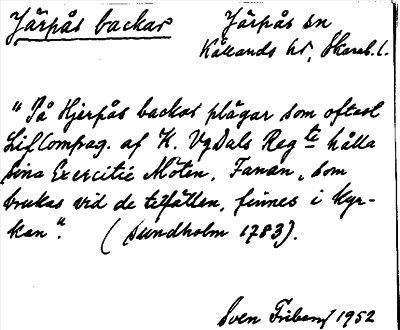 Järpås backar Järpås sn
Kållands hd, Skarab. l.
"På Hjerpås backar plågar som oftast
LifCompag. af K. VgDals Reg:te hålla
sina Exercitie Möten, Fanan, som
brukas vid de tilfällen, finnes i Kyr-
kan". (Sundholm 1783).
Sven Friberg 1952